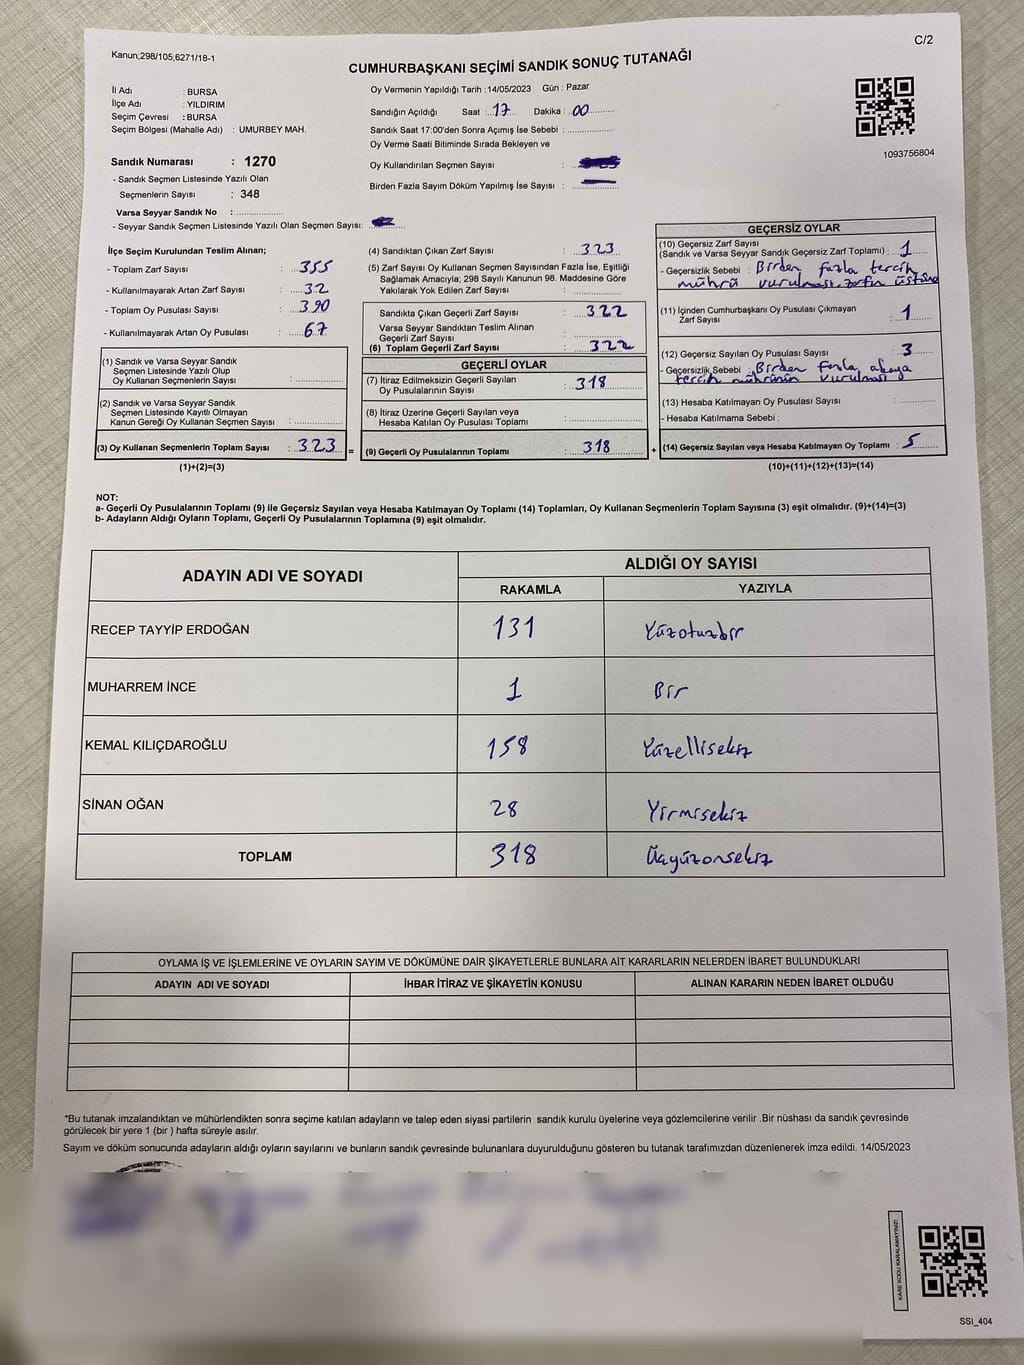 C/2
Kanun;298/105,6271/18-1
CUMHURBAŞKANI SEÇİMİ SANDIK SONUÇ TUTANAĞI
İl Adı : BURSA
İlçe Adı : YILDIRIM
Seçim Çevresi : BURSA
Seçim Bölgesi (Mahalle Adı) : UMURBEY MAH.
Sandık Numarası : 1270
- Sandık Seçmen Listesinde Yazılı Olan
Seçmenlerin Sayısı : 348
Varsa Seyyar Sandık No :
- Seyyar Sandık Seçmen Listesinde Yazılı Olan Seçmen Sayısı:
Oy Vermenin Yapıldığı Tarih :14/05/2023 Gün : Pazar
Sandığın Açıldığı Saat : 17 Dakika : 00
Sandık Saat 17:00'den Sonra Açımış İse Sebebi :
Oy Verme Saati Bitiminde Sırada Bekleyen ve
Oy Kullandırılan Seçmen Sayısı :
Birden Fazla Sayım Döküm Yapılmış İse Sayısı :
1093756804
İlçe Seçim Kurulundan Teslim Alınan;
- Toplam Zarf Sayısı : 355
- Kullanılmayarak Artan Zarf Sayısı : 32
- Toplam Oy Pusulası Sayısı : 390
- Kullanılmayarak Artan Oy Pusulası : 67
(1) Sandık ve Varsa Seyyar Sandık
Seçmen Listesinde Yazılı Olup
Oy Kullanan Seçmenlerin Sayısı :
(2) Sandık ve Varsa Seyyar Sandık
Seçmen Listesinde Kayıtlı Olmayan
Kanun Gereği Oy Kullanan Seçmen Sayısı :
(3) Oy Kullanan Seçmenlerin Toplam Sayısı : 323
(1)+(2)=(3)
(4) Sandıktan Çıkan Zarf Sayısı : 323
(5) Zarf Sayısı Oy Kullanan Seçmen Sayısından Fazla İse, Eşitliği
Sağlamak Amacıyla; 298 Sayılı Kanunun 98. Maddesine Göre
Yakılarak Yok Edilen Zarf Sayısı :
Sandıkta Çıkan Geçerli Zarf Sayısı : 322
Varsa Seyyar Sandıktan Teslim Alınan
Geçerli Zarf Sayısı :
(6) Toplam Geçerli Zarf Sayısı : 322
GEÇERLİ OYLAR
(7) İtiraz Edilmeksizin Geçerli Sayılan
Oy Pusulalarının Sayısı : 318
(8) İtiraz Üzerine Geçerli Sayılan veya
Hesaba Katılan Oy Pusulası Toplamı :
= (9) Geçerli Oy Pusulalarının Toplamı : 318 +
GEÇERSİZ OYLAR
(10) Geçersiz Zarf Sayısı
(Sandık ve Varsa Seyyar Sandık Geçersiz Zarf Toplamı) : 1
- Geçersizlik Sebebi : Birden fazla tercih
mührü vurulması, zarfın üstüne
(11) İçinden Cumhurbaşkanı Oy Pusulası Çıkmayan
Zarf Sayısı : 1
(12) Geçersiz Sayılan Oy Pusulası Sayısı : 3
- Geçersizlik Sebebi : Birden fazla adaya
tercih mührünün vurulması
(13) Hesaba Katılmayan Oy Pusulası Sayısı :
- Hesaba Katılmama Sebebi :
(14) Geçersiz Sayılan veya Hesaba Katılmayan Oy Toplamı : 5
(10)+(11)+(12)+(13)=(14)
NOT:
a- Geçerli Oy Pusulalarının Toplamı (9) ile Geçersiz Sayılan veya Hesaba Katılmayan Oy Toplamı (14) Toplamları, Oy Kullanan Seçmenlerin Toplam Sayısına (3) eşit olmalıdır. (9)+(14)=(3)
b- Adayların Aldığı Oyların Toplamı, Geçerli Oy Pusulalarının Toplamına (9) eşit olmalıdır.
ADAYIN ADI VE SOYADI
ALDIĞI OY SAYISI
RAKAMLA YAZIYLA
RECEP TAYYİP ERDOĞAN 131 Yüzotuzbir
MUHARREM İNCE 1 Bir
KEMAL KILIÇDAROĞLU 158 Yüzellisekiz
SİNAN OĞAN 28 Yirmisekiz
TOPLAM 318 Üçyüzonsekiz
OYLAMA İŞ VE İŞLEMLERİNE VE OYLARIN SAYIM VE DÖKÜMÜNE DAİR ŞİKAYETLERLE BUNLARA AİT KARARLARIN NELERDEN İBARET BULUNDUKLARI
ADAYIN ADI VE SOYADI İHBAR İTİRAZ VE ŞİKAYETİN KONUSU ALINAN KARARIN NEDEN İBARET OLDUĞU
*Bu tutanak imzalandıktan ve mühürlendikten sonra seçime katılan adayların ve talep eden siyasi partilerin sandık kurulu üyelerine veya gözlemcilerine verilir .Bir nüshası da sandık çevresinde
görülecek bir yere 1 (bir ) hafta süreyle asılır.
Sayım ve döküm sonucunda adayların aldığı oyların sayılarını ve bunların sandık çevresinde bulunanlara duyurulduğunu gösteren bu tutanak tarafımızdan düzenlenerek imza edildi. 14/05/2023
KARE KODU KARALAMAYINIZ!
SSI_404